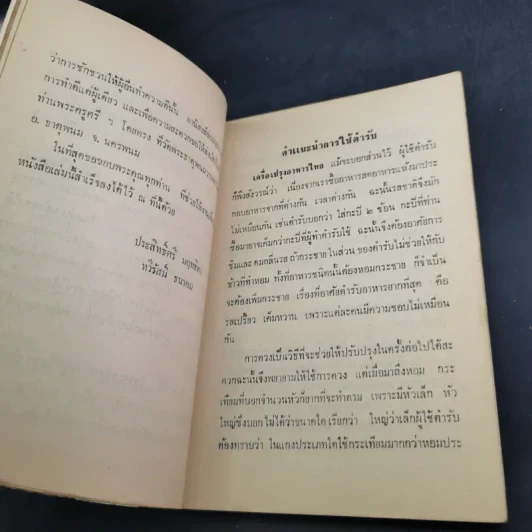 ว่าการชักชวนให้ผู้อื่นทำความดีนั้น
การทำดีแต่ผู้เดียว และเพื่อความสะดวกขอให้
ท่านพระครูศรี ฯ โดยตรง ที่วัดพระธาตุพนม
อ. ธาตุพนม จ. นครพนม
ในที่สุดขอขอบพระคุณทุกท่าน ที่ช่วยให้
หนังสือเล่มนี้สำเร็จลงได้ไว้ ณ ที่นี้ด้วย
ประสิทธิ์ศรี
ทวีรัศน์ ธนาคม
คำแนะนำการใช้ตำรับ
เครื่องปรุงอาหารไทย แม้จะบอกส่วนไว้ ผู้ใช้ตำรับ
ก็พึงสังวรณ์ว่า เนื่องจากเราซื้ออาหารสดอาหารแห้งมาประ
กอบอาหารจากที่ต่างกัน เวลาต่างกัน ฉะนั้นรสชาติจึงมัก
ไม่เหมือนกัน เช่นตำรับบอกว่า ใส่กะปิ ๒ ช้อน กะปิที่ท่าน
ซื้อมาอาจเค็มกว่ากะปิที่ผู้ทำตำรับใช้ ฉะนั้นจึงต้องอาศัยการ
ชิมและดมกลิ่นรส ถ้ากระชายในส่วน ของตำรับไม่ช่วยให้กับ
ข้าวที่ทำหอม ทั้งที่อาหารชนิดนั้นต้องหอมกระชาย ก็จำเป็น
จะต้องเพิ่มกระชาย เรื่องที่อาศัยตำรับอาหารยากที่สุด คือ
รสเปรี้ยว เค็มหวาน เพราะแต่ละคนมีความชอบไม่เหมือน
กัน
การตวงเป็นวิธีที่จะช่วยให้ปรับปรุงในครั้งต่อไปได้สะ
ดวกฉะนั้นจึงพยายามให้ใช้การตวง แต่เมื่อมาถึงหอม กระ
เทียมที่บอกจำนวนหัวก็ยากที่จะทำตาม เพราะมีหัวเล็ก หัว
ใหญ่ซึ่งบอกไม่ได้ว่าขนาดใดเรียกว่า ใหญ่ว่าเล็กผู้ใช้ตำรับ
ต้องทราบว่า ในแกงประเภทใดใช้กระเทียมมากกว่าหอมประ